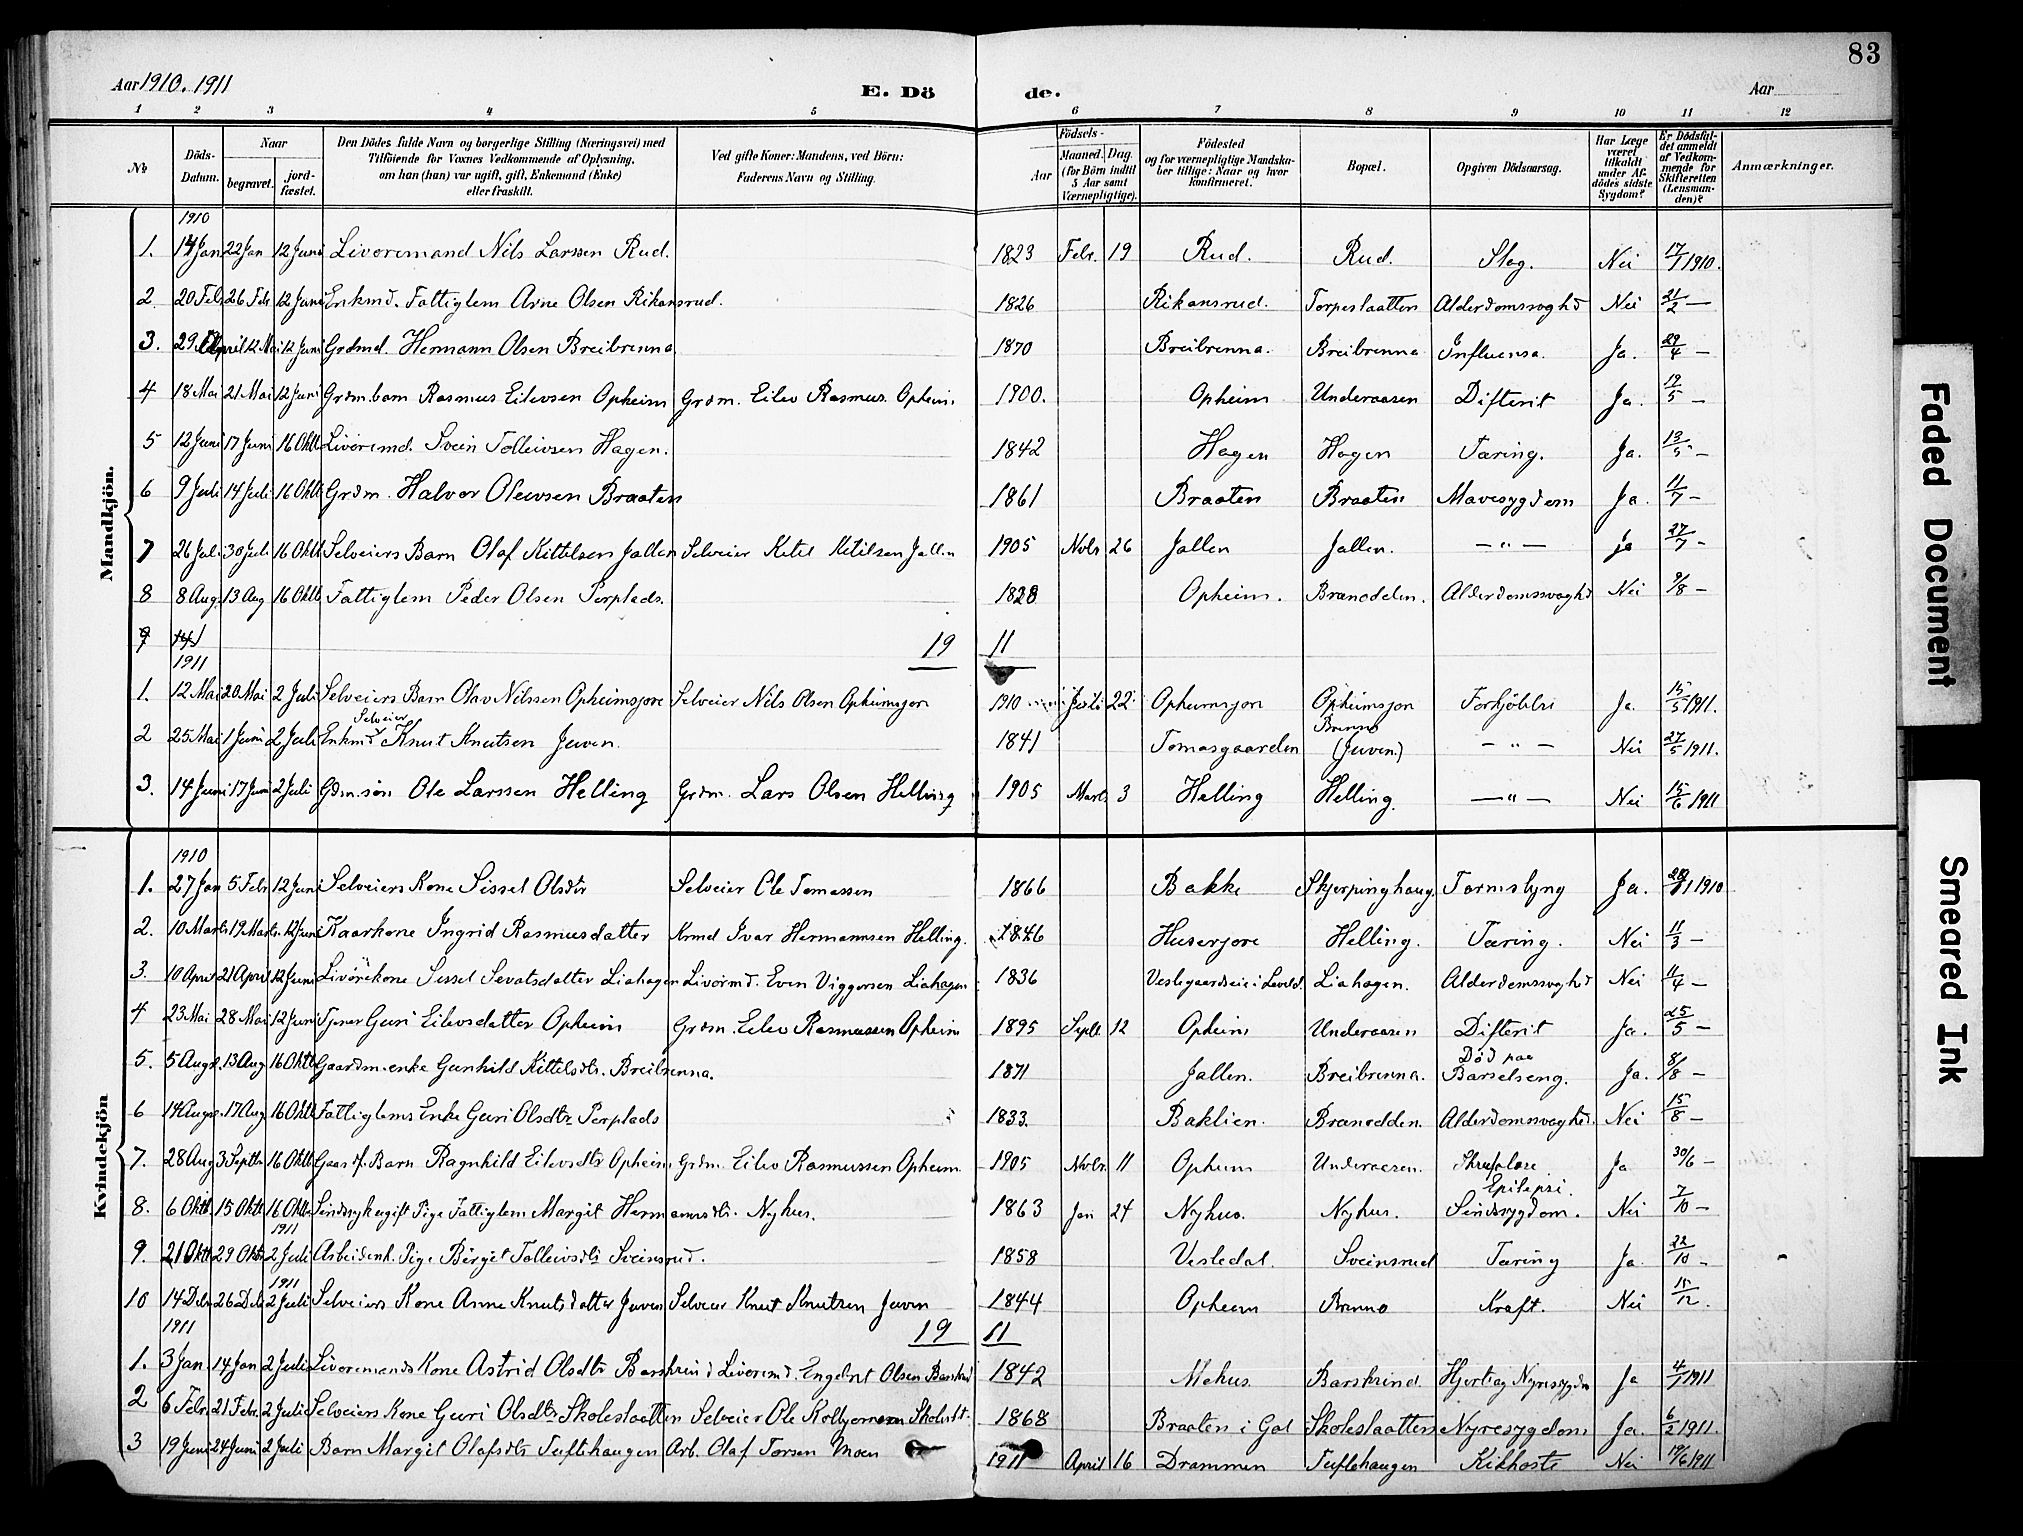 83
Aar 1910. 1911
E. Dö de.
Aar
1 2 3 4 5 6 7 8 9 10 11 12
No
Döds-Datum.
Naar begravet. jord-fæstet.
Den Dödes fulde Navn og borgerlige Stilling (Næringsvei) med Tilföiende for Voxnes Vedkommende af Oplysning, om han (hun) var ugift, gift, Enkemand (Enke) eller fraskilt.
Ved gifte Koner: Mandens, ved Börn: Faderens Navn og Stilling.
Födsels- Aar Maaned. Dag. (for Börn indtil 5 Aar samt Værnepligtige).
Födested og for værnepligtige Mandskaber tillige: Naar og hvor konfirmeret.
Bopæl.
Opgiven Dödsaarsag.
Har Læge været tilkaldt under Afdödes sidste Sygdom?
Er Dödsfaldet anmeldt af Vedkommende for Skifteretten (Lensmanden)?
Anmærkninger.
Mandkjön.
1910
1. 14 Jan 22 Jan 12 Juni Livöremand Nils Larssen Rud. 1823 Febr. 19 Rud. Rud. Slag. Nei 17/1 1910.
2 20 Febr 26 Febr 12 Juni Enkmd. Fattiglem Arne Olsen Rikansrud. 1826 Rikansrud. Torpeslaatten Alderdomssvaghd Nei 21/2 —
3. 29 April 12 Mai 12 Juni Grdmd. Hermann Olsen Breibrenna. 1870 Breibrenna. Breibrenna Influensa. Ja. 29/4 —
4 18 Mai 21 Mai 12 Juni Grdm.barn Rasmus Eilevsen Opheim Grdm. Eilev Rasmus. Opheim. 1900. Opheim Underaasen Difterit Ja. 19/5 —
5 12 Juni 17 Juni 16 Oktb Livöremd. Svein Tolleivsen Hagen. 1842 Hagen Hagen Tæring. Ja. 13/5 —
6 9 Juli 14 Juli 16 Oktb Grdm. Halvor Oleivsen Braaten 1861 Braaten Braaten Mavesygdom Ja. 11/7 —
7 26 Juli 30 Juli 16 Oktb Selveiers Barn Olaf Kittilsen Jallen Selveier Ketil Ketilsen Jallen 1905 Novbr 26 Jallen Jallen. — " — Ja 27/7 —
8 8 Aug. 13 Aug 16 Oktb Fattiglem Peder Olsen Perplads. 1828 Opheim. Branodden. Alderdomssvaghd Nei 9/8 —
9 14/1
19 11
1911
1. 12 Mai 20 Mai 2 Juli Selveiers Barn Olav Nilssen Opheimsjore Selveier Nils Olsen Opheimsjon 1910 Juli 22 Opheimsjon Opheimsjon Forkjölelse Ja. 15/5 1911.
2 25 Mai 1 Juni 2 Juli Enkmd Selveier Knut Knutsen Juven. 1841 Tomasgaarden Brenno (Juven.) — " — Nei 27/5 1911.
3. 14 Juni 17 Juni 2 Juli Gdm.sön Ole Larssen Helling Grdm. Lars Olsen Helling 1905 Marts 3 Helling Helling. — " — Nei 15/6 1911
Kvindekjön
1910
1. 27 Jan 5 Febr 12 Juni Selveiers Kone Sissel Olsdtr Selveier Ole Tomassen 1866 Bakke Skjerpinghaug. Tarmslyng Ja. 28/1 1910
2. 10 Marts 19 Marts. 12 Juni Kaarkone Ingrid Rasmusdatter Krmd Ivar Hermannsen Helling. 1846 Huserjore Helling. Tæring. Nei 11/3 —
3. 10 April 21 April 12 Juni Livörekone Sissel Sevatsdatter Liahagen Livörmd. Even Viggersen Liahagen 1836 Veslegaardseie i Leveld. Liahagen. Alderdomssvaghd Nei 11/4 —
4 23 Mai 28 Mai 12 Juni Tjener Guri Eilevsdatter Opheim Grdm. Eilev Rasmussen Opheim 1895 Septb. 12 Opheim Underaasen Difterit Ja. 25/5 —
5. 5 Aug. 13 Aug 16 Oktb Gaardm. enke Gunhild Kittelsdtr. Breibrenna. 1871 Jallen. Breibrenna. Död paa Barselseng. Ja. 8/8 —
6 14 Aug. 17 Aug 16 Oktb Fattiglems Enke Guri Olsdtr Perplads 1833. Baklien. Branodden. Alderdomssvaghd. Nei 15/8 —
7. 28 Aug 3 Septb 16 Oktb Gaardf. Barn Ragnhild Eilevsdtr Opheim Grdm. Eilev Rasmussen Opheim. 1905 Novbr. 11 Opheim Underaasen. Ja 30/6 —
8. 6 Oktb. 15 Oktb 16 Oktb Sindssyk ugift Pige Fattiglem Margit Hermannsdtr. Nyhus. 1863 Jan 24 Nyhus. Nyhus. Epilepsi. Sindssygdom. Nei 7/10 —
9. 21 Oktb 29 Oktb 1911 2 Juli Arbeidenk. Pige Birgit Tolleivsdtr Sveinsrud. 1858 Vesledal. Sveinsrud Tæring Ja. 22/10 —
10 14 Debr 26 Debr 1911 2 Juli Selveiers Kone Anne Knutsdatter Juven Selveier Knut Knutsen Juven 1844 Opheim Brenno Kræft. Nei 15/12.
1911
19 11
1. 3 Jan. 14 Jan 2 Juli Livöremands Kone Astrid Olsdtr Barskrind Livöremd. Engebret Olsen Barskrind 1842 Mehus. Barskrind. Hjerte og Nyresygdom Ja 4/1 1911
2 6 Febr. 21 Febr. 2 Juli Selveiers Kone Guri Olsdtr Skoleslaatten Selveier Ole Kolbjørnsen Skoleslt. 1868 Braaten i Gol Skoleslaatten Nyresygdom Ja. 6/2 1911.
3 19 Juni 24 Juni 2 Juli Barn Margit Olafsdtr Tuftehaugen Arb. Olaf Torsen Moen 1911 April 16 Drammen Tuftehaugen Kikhoste Nei 19/6 1911
Faded Document
Smeared Ink